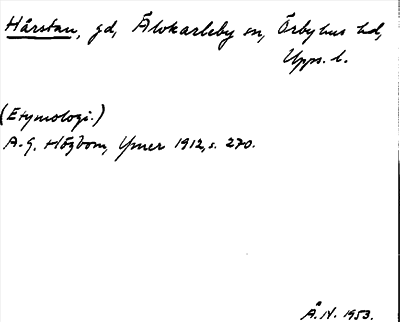 Hårstau, gd, Älvkarleby sn, Örbyhus hd,
Upps. l.
(Etymologi.)
A.G. Högbom, Ymer 1912, s. 270.
Å.N. 1953.